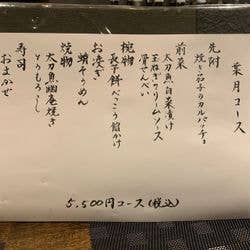 葉月コース
先附
焼き茄子のカルパッチョ
前菜
太刀魚白菜漬け
玉ねぎクリームソース
骨せんべい
椀物
長芋餅べっこう餡かけ
お凌ぎ
蛸そうめん
焼物
太刀魚幽庵焼き
とうもろこし
寿司
おまかせ
5,500円コース(税込)